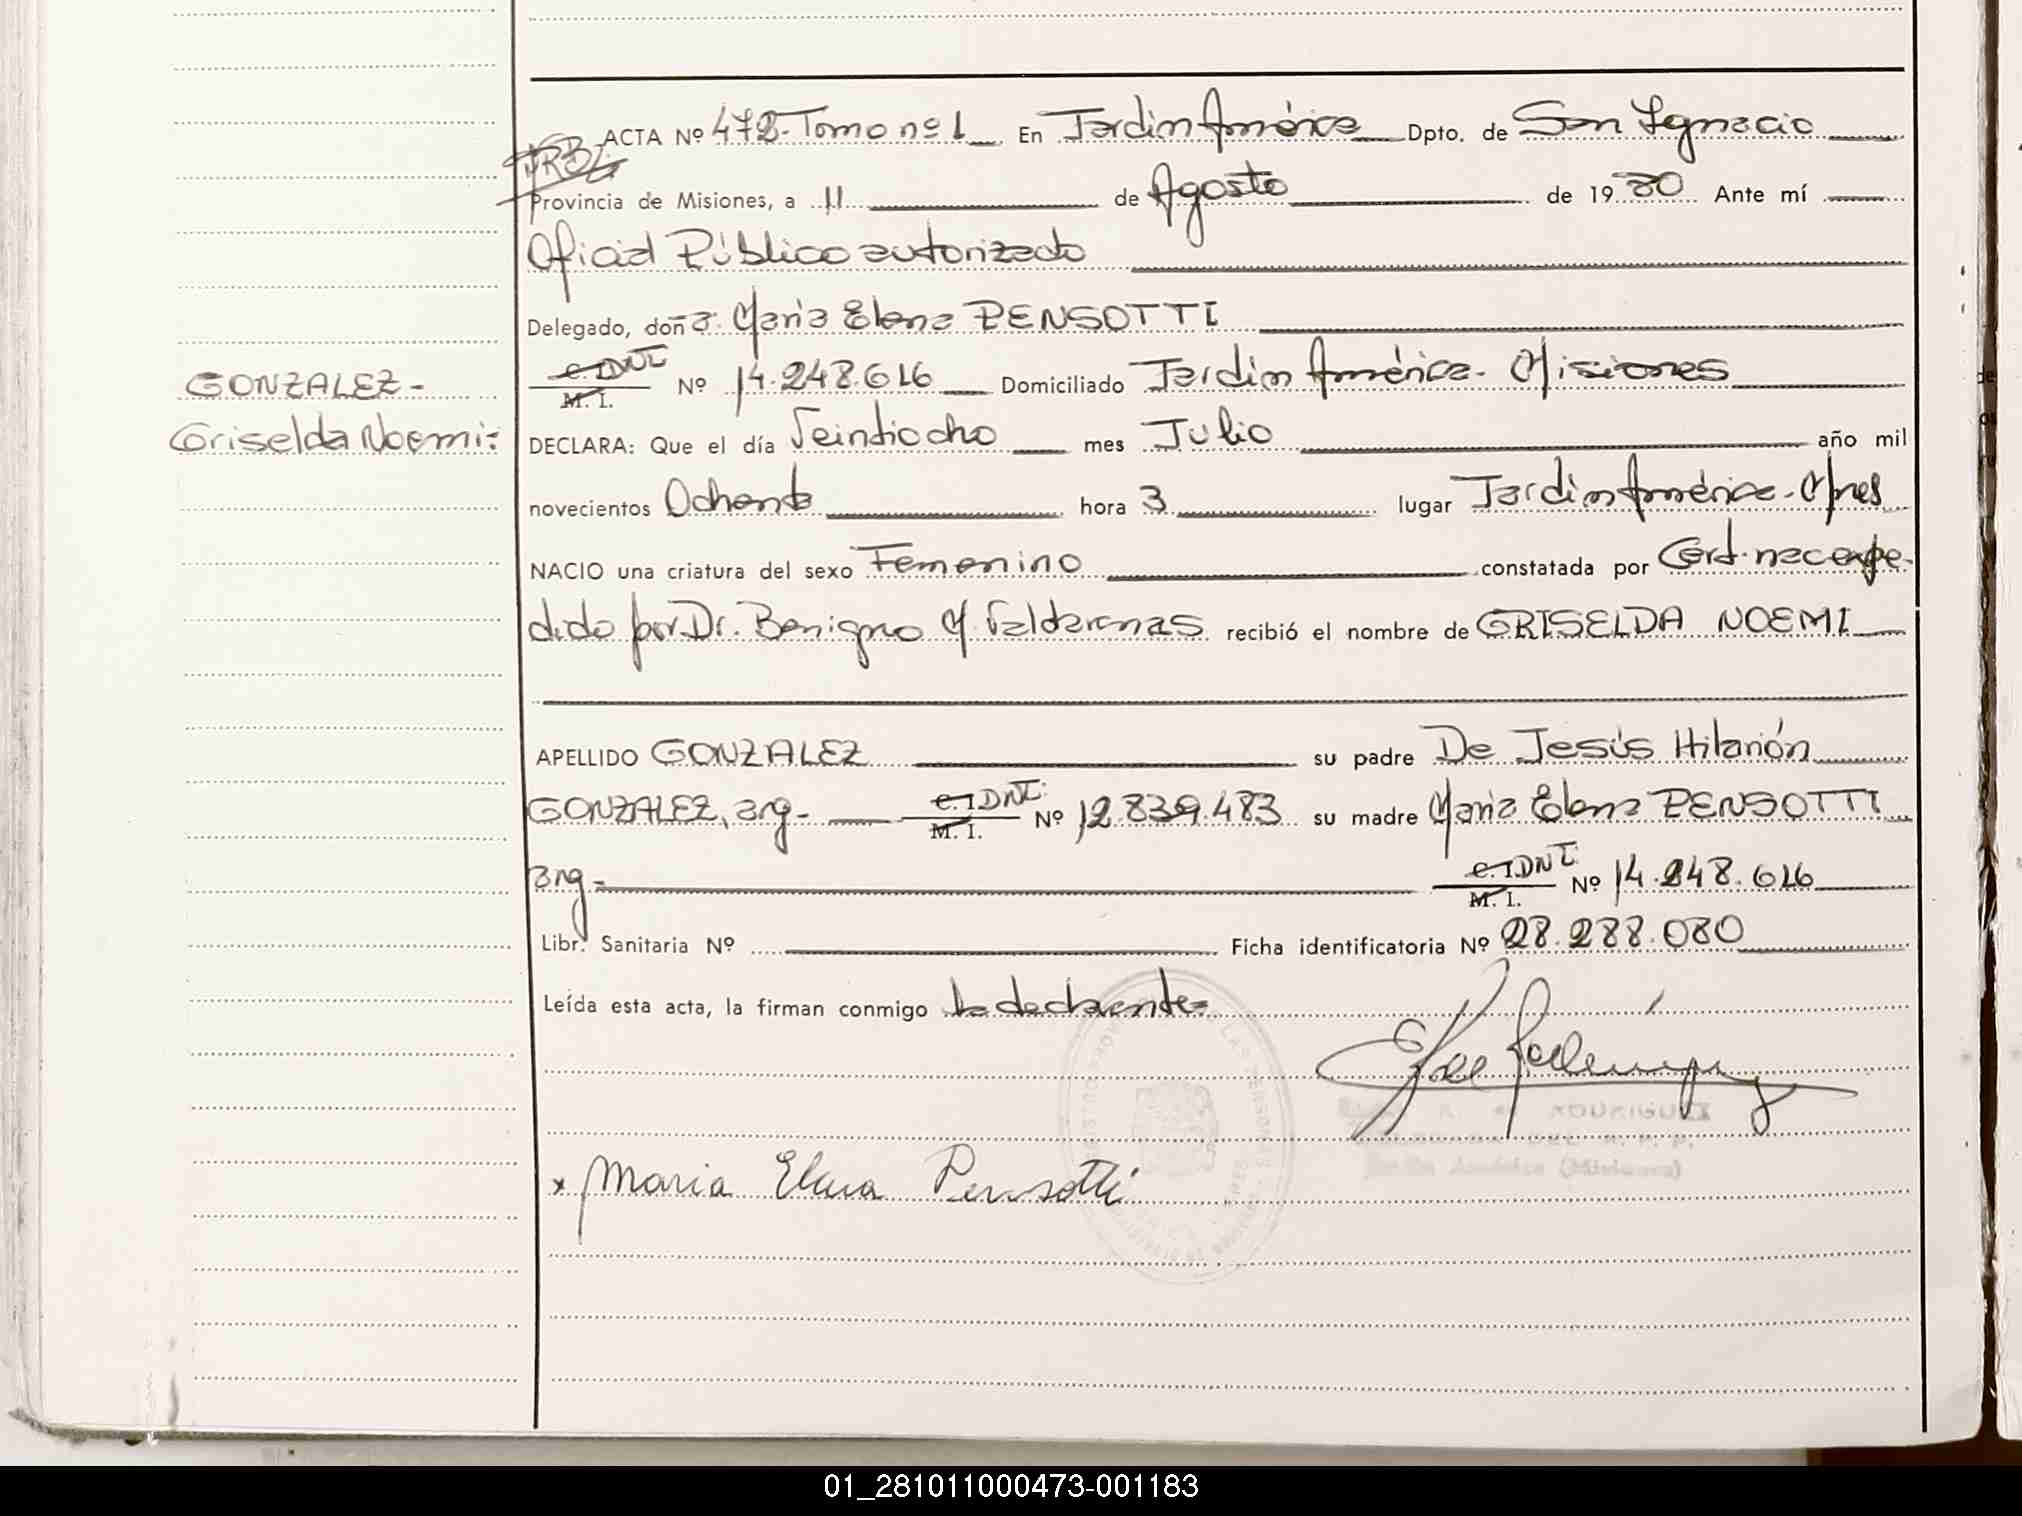 ACTA Nº 472- Tomo nº 1 En Jardín América Dpto. de San Ignacio
Provincia de Misiones, a 11 de Agosto de 1980 Ante mí
Oficial Público autorizado
Delegado, doña. María Elena PENSOTTI
C. DNI
M. I. Nº 14.248.616 Domiciliado Jardín América - Misiones
GONZALEZ -
Griselda Noemi =
DECLARA: Que el día Veintiocho mes Julio año mil
novecientos Ochenta hora 3 lugar Jardín América - Mnes
NACIO una criatura del sexo Femenino constatada por Cert. nac expe-
dido por Dr. Benigno M. Valdarenas recibió el nombre de GRISELDA NOEMI
APELLIDO GONZALEZ su padre De Jesús Hilarión
GONZALEZ, arg- C. I DNI. M. I. Nº 12.839.483 su madre María Elena PENSOTTI
arg- C. I. DNI. M. I. Nº 14.248.616
Libr. Sanitaria Nº Ficha identificatoria Nº 28.288.080
Leída esta acta, la firman conmigo la declarante=
x Maria Elena Pensotti
01_281011000473-001183